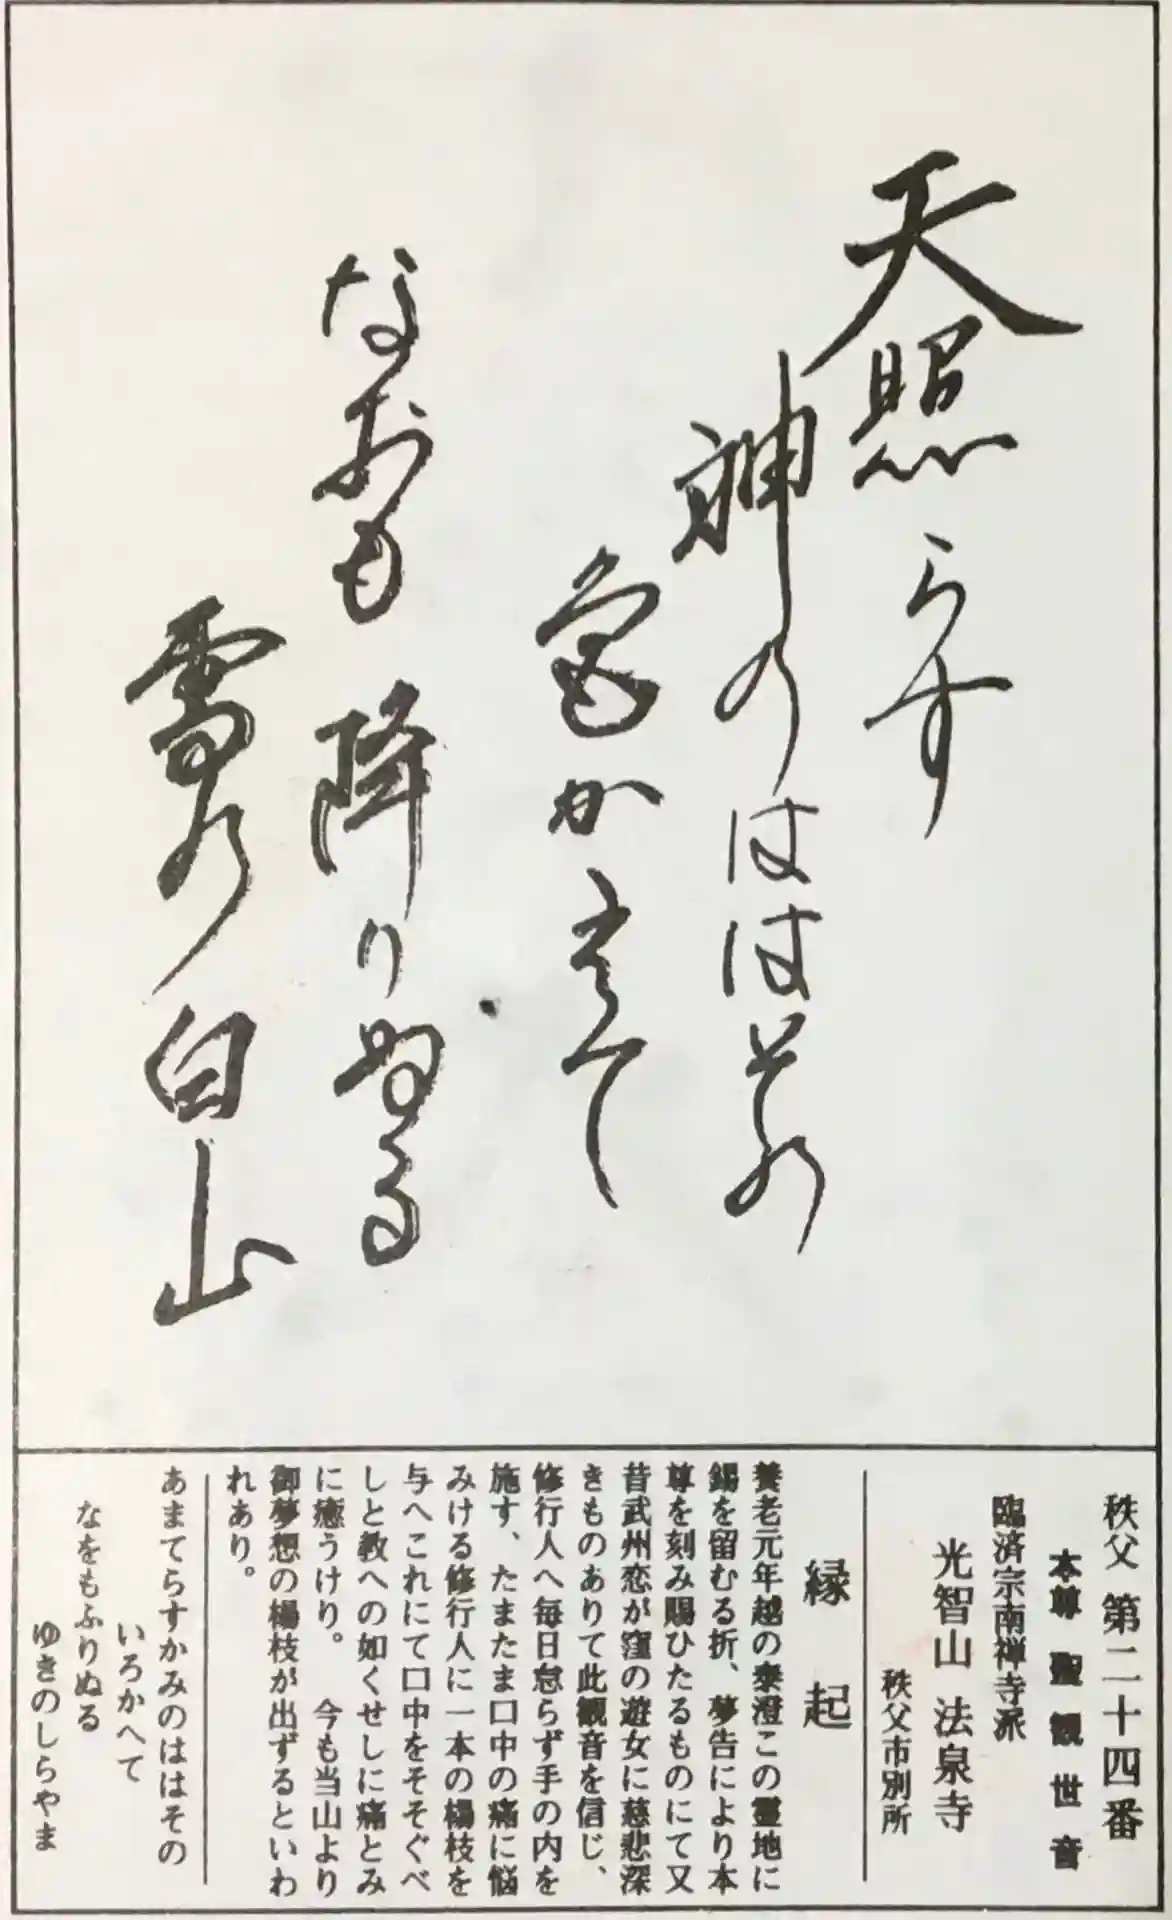 天照らす
神のははその
色かえて
なおも降りぬる
雪の白山
秩父 第二十四番
本尊 聖観世音
臨済宗南禅寺派
光智山 法泉寺
秩父市別所
縁起
養老元年越の泰澄この霊地に
錫を留むる折、夢告により本
尊を刻み賜ひたるものにて又
昔武州恋が窪の遊女に慈悲深
きものありて此観音を信じ、
修行人へ毎日怠らず手の内を
施す、たまたま口中の痛に悩
みける修行人に一本の楊枝を
与へこれにて口中をそそぐべ
しと教への如くせしに痛とみ
に癒うけり。 今も当山より
御夢想の楊枝が出ずるといわ
れあり。
あまてらすかみのははその
いろかへて
なをもふりぬる
ゆきのしらやま